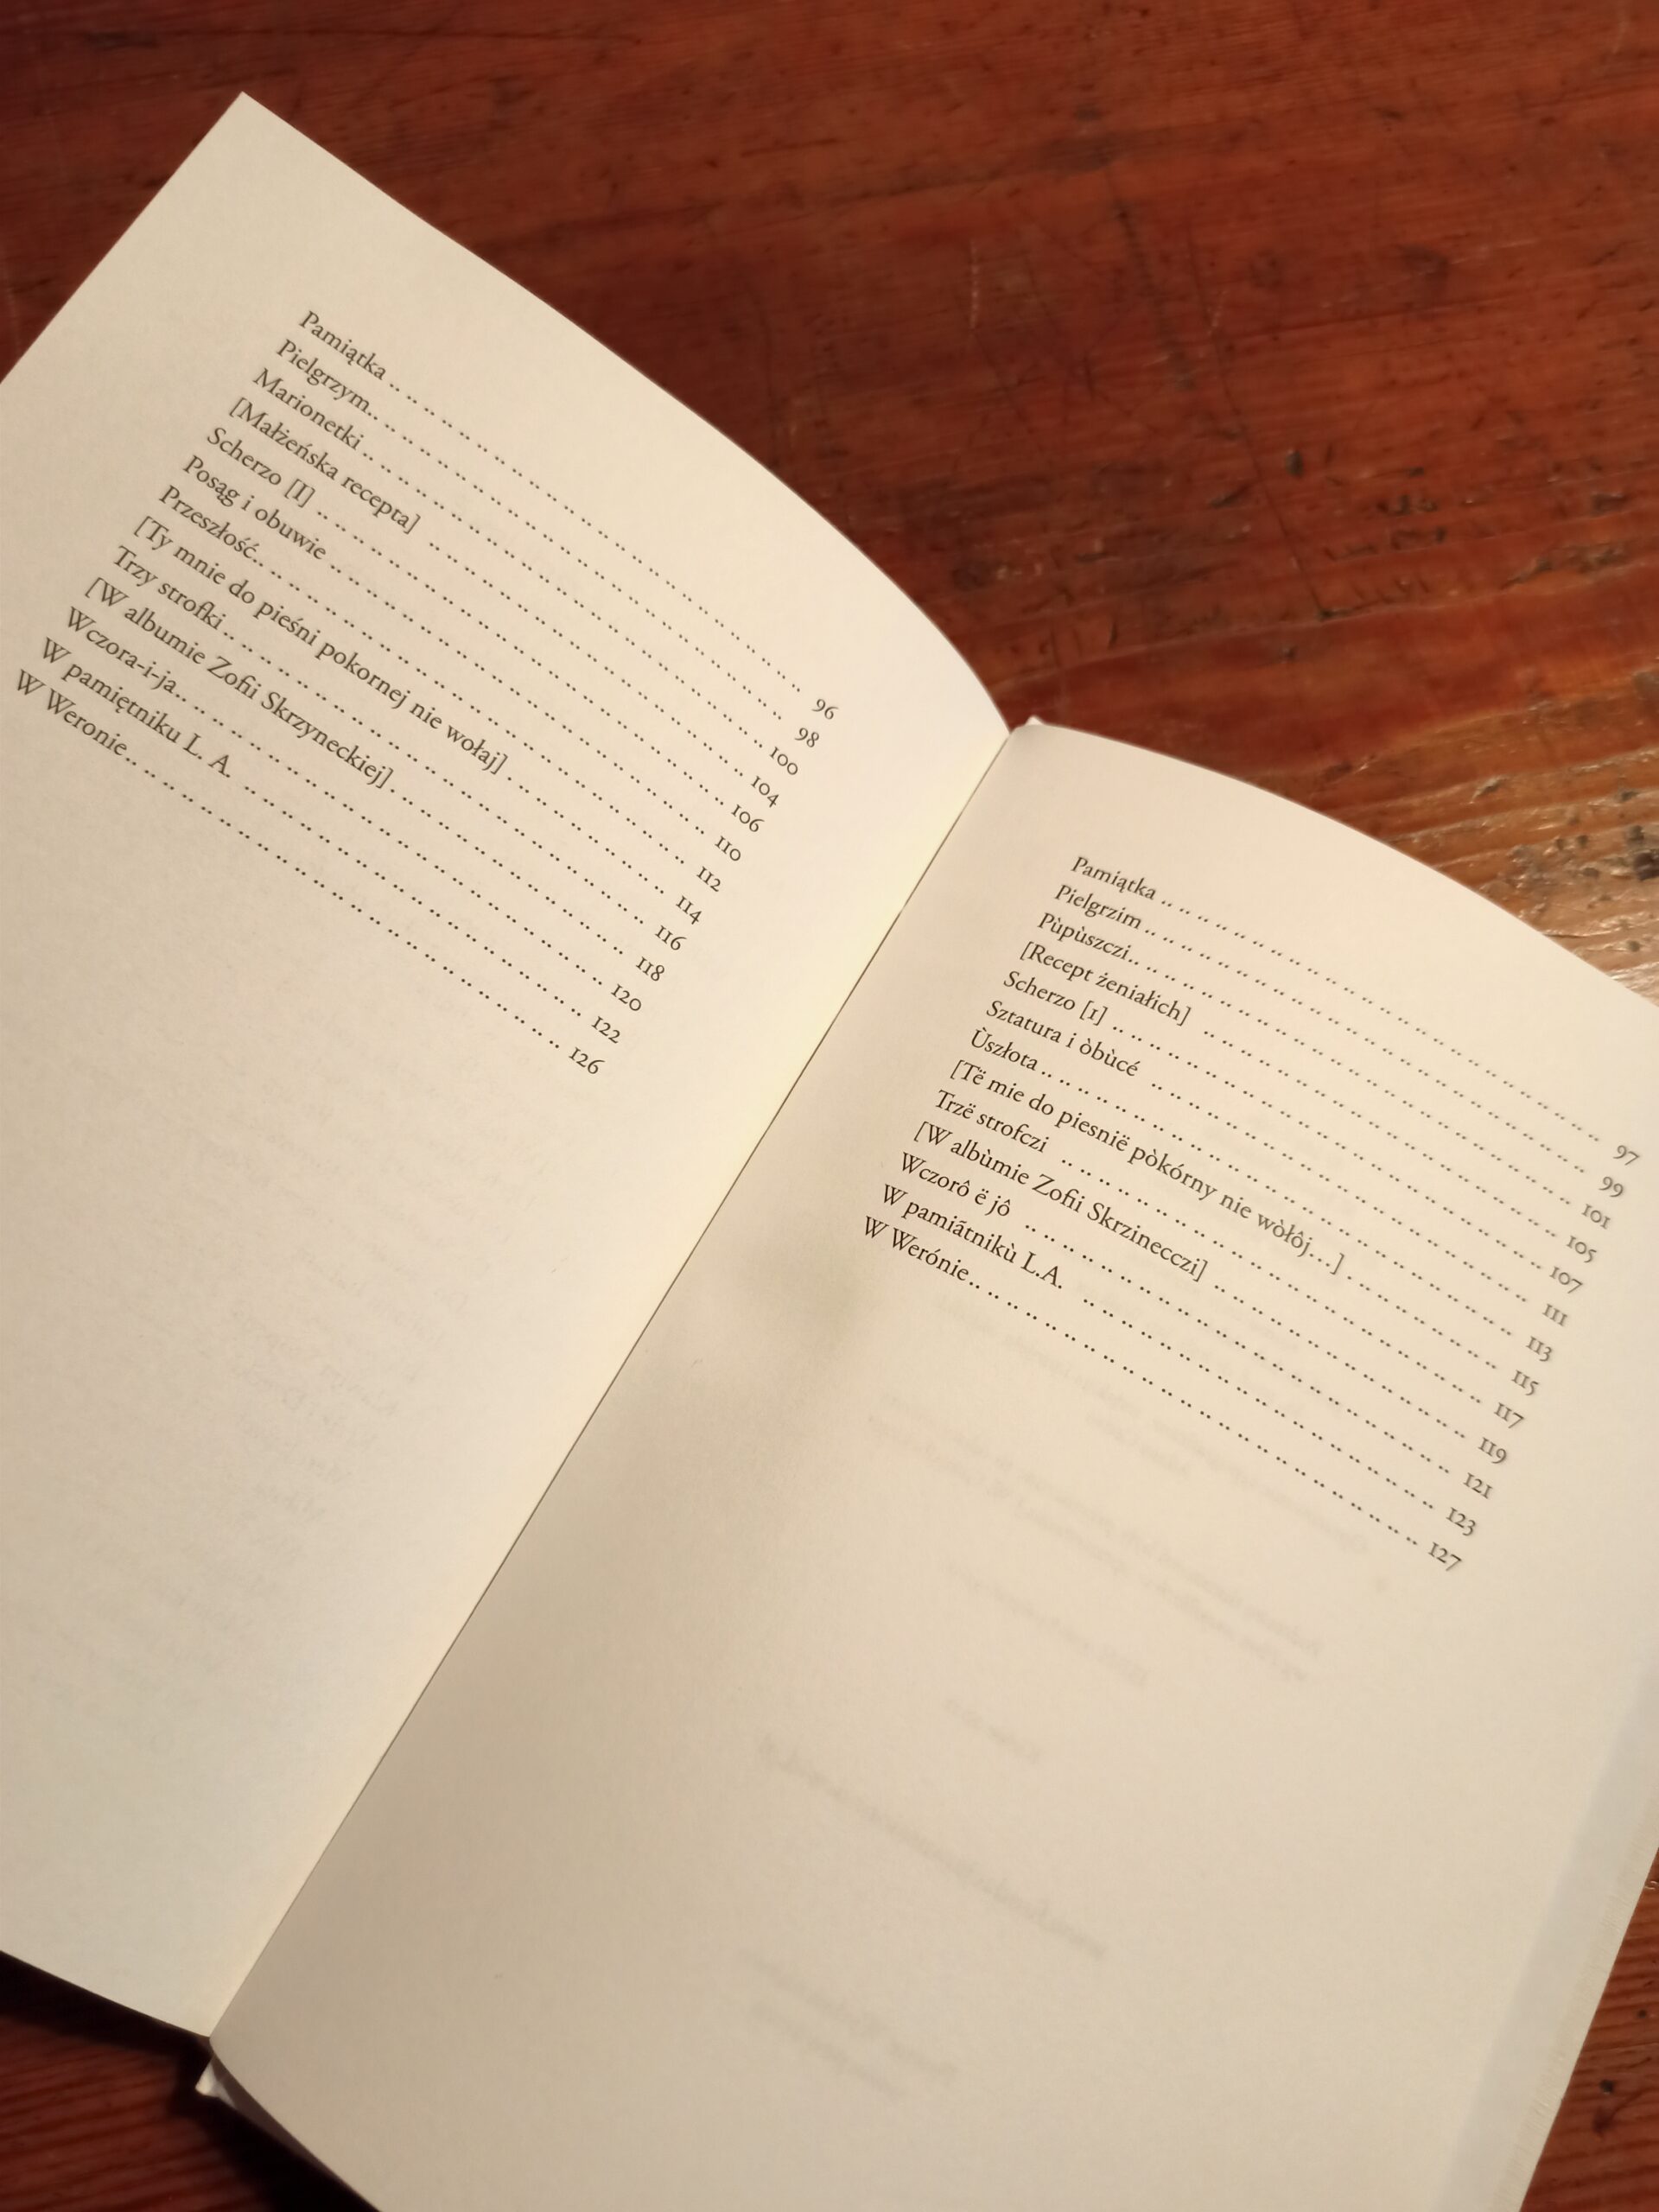 Pamiątka .. .. .. .. .. .. .. .. .. .. .. .. .. .. .. .. .. .. .. .. .. 96
Pielgrzym.. .. .. .. .. .. .. .. .. .. .. .. .. .. .. .. .. .. .. .. .. 98
Marionetki .. .. .. .. .. .. .. .. .. .. .. .. .. .. .. .. .. .. .. .. 100
[Małżeńska recepta] .. .. .. .. .. .. .. .. .. .. .. .. .. .. .. .. 104
Scherzo [I] .. .. .. .. .. .. .. .. .. .. .. .. .. .. .. .. .. .. .. .. 106
Posąg i obuwie .. .. .. .. .. .. .. .. .. .. .. .. .. .. .. .. .. .. 110
Przeszłość.. .. .. .. .. .. .. .. .. .. .. .. .. .. .. .. .. .. .. .. .. 112
[Ty mnie do pieśni pokornej nie wołaj] .. .. .. .. .. .. .. .. 114
Trzy strofki .. .. .. .. .. .. .. .. .. .. .. .. .. .. .. .. .. .. .. .. 116
[W albumie Zofii Skrzyneckiej] .. .. .. .. .. .. .. .. .. .. .. 118
Wczora-i-ja.. .. .. .. .. .. .. .. .. .. .. .. .. .. .. .. .. .. .. .. 120
W pamiętniku L. A. .. .. .. .. .. .. .. .. .. .. .. .. .. .. .. .. 122
W Weronie.. .. .. .. .. .. .. .. .. .. .. .. .. .. .. .. .. .. .. .. 126
Pamiątka .. .. .. .. .. .. .. .. .. .. .. .. .. .. .. .. .. .. .. .. .. 97
Pielgrzim .. .. .. .. .. .. .. .. .. .. .. .. .. .. .. .. .. .. .. .. .. 99
Pùpùszczi.. .. .. .. .. .. .. .. .. .. .. .. .. .. .. .. .. .. .. .. .. 101
[Recept żeniałich] .. .. .. .. .. .. .. .. .. .. .. .. .. .. .. .. .. 105
Scherzo [1] .. .. .. .. .. .. .. .. .. .. .. .. .. .. .. .. .. .. .. .. 107
Sztatura i òbùcé .. .. .. .. .. .. .. .. .. .. .. .. .. .. .. .. .. .. 111
Ùszłota .. .. .. .. .. .. .. .. .. .. .. .. .. .. .. .. .. .. .. .. .. .. 113
[Të mie do piesnië pòkórny nie wòłôj...] .. .. .. .. .. .. .. .. 115
Trzë strofczi .. .. .. .. .. .. .. .. .. .. .. .. .. .. .. .. .. .. .. .. 117
[W albùmie Zofii Skrzinecczi] .. .. .. .. .. .. .. .. .. .. .. .. 119
Wczorô ë jô .. .. .. .. .. .. .. .. .. .. .. .. .. .. .. .. .. .. .. .. 121
W pamiãtnikù L.A. .. .. .. .. .. .. .. .. .. .. .. .. .. .. .. .. .. 123
W Werónie.. .. .. .. .. .. .. .. .. .. .. .. .. .. .. .. .. .. .. .. .. 127